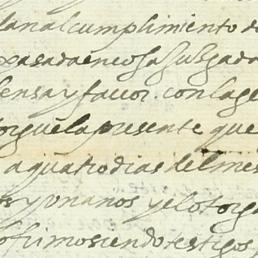 lanal cumplimiento de
pasada en cosa Juzgada
fensa y favor con la ge
torgue la presente que
a quatro dias del mes
e y un anos y el otorga
o firmo siendo testigos